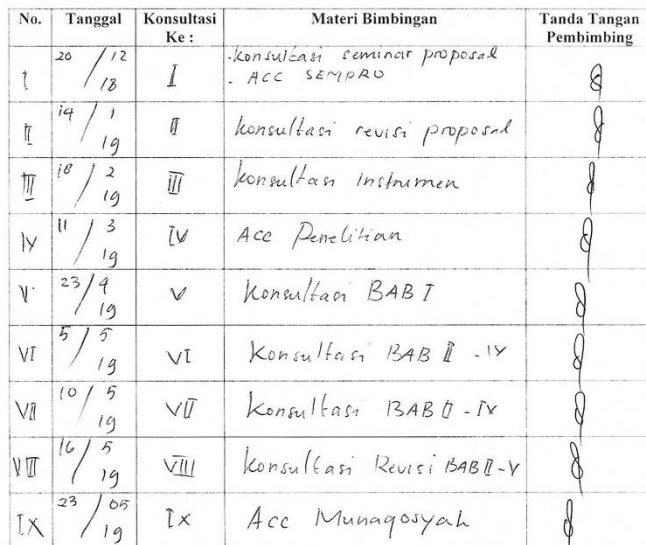 No. Tanggal Konsultasi Ke : Materi Bimbingan Tanda Tangan Pembimbing
I 20/12 18 I - konsultasi seminar proposal
- ACC SEMPRO
II 14/1 19 II konsultasi revisi proposal
III 18/2 19 III konsultasi Instrumen
IV 11/3 19 IV Acc Penelitian
V 23/4 19 V Konsultasi BAB I
VI 5/5 19 VI Konsultasi BAB II - IV
VII 10/5 19 VII Konsultasi BAB II - IV
VIII 16/5 19 VIII Konsultasi Revisi BAB II - V
IX 23/05 19 IX Acc Munaqosyah